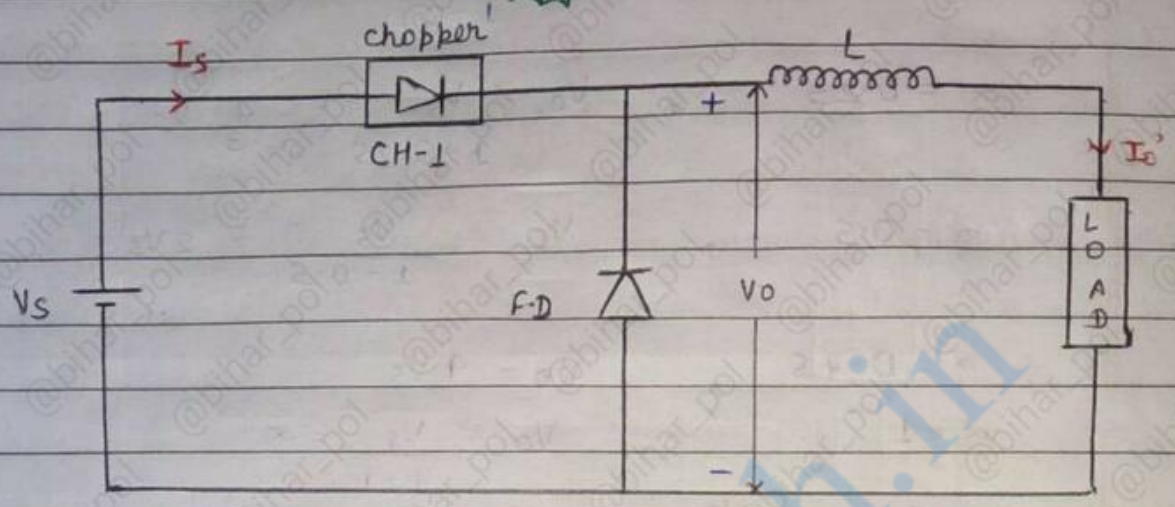 chopper
Is
L
CH-1
+
Io
LOAD
Vs
F-D
Vo
-
@bihar_pol
h.in